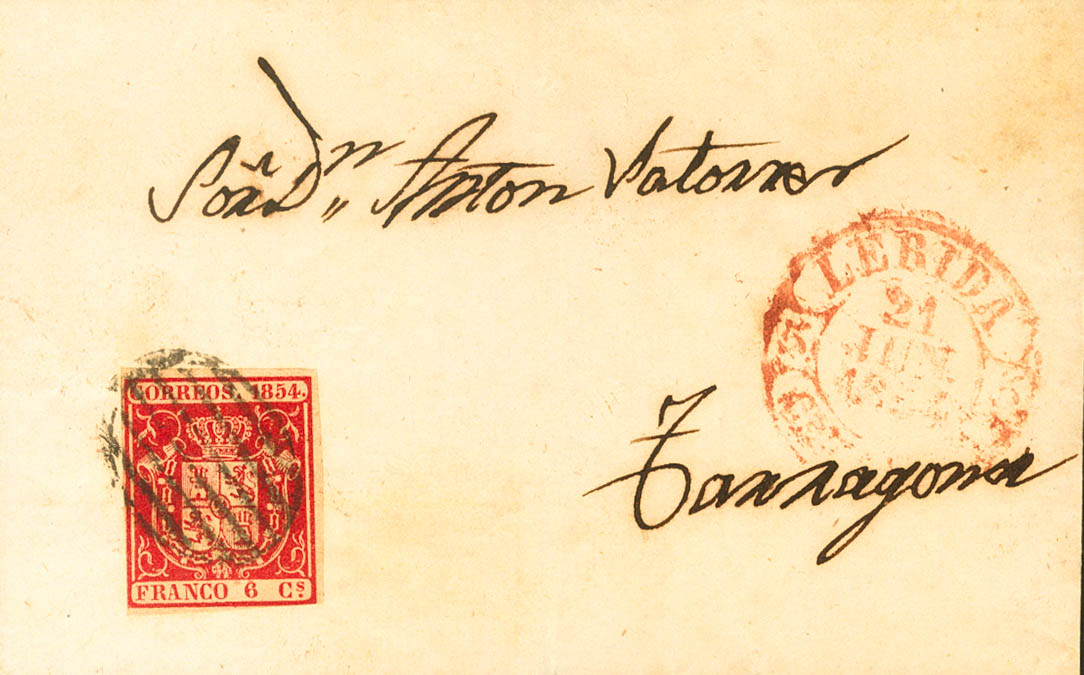 Sor. Dn. Anton Satorres
LERIDA
21
JUN
CORREOS. 1854.
Tarragona
FRANCO 6 Cs